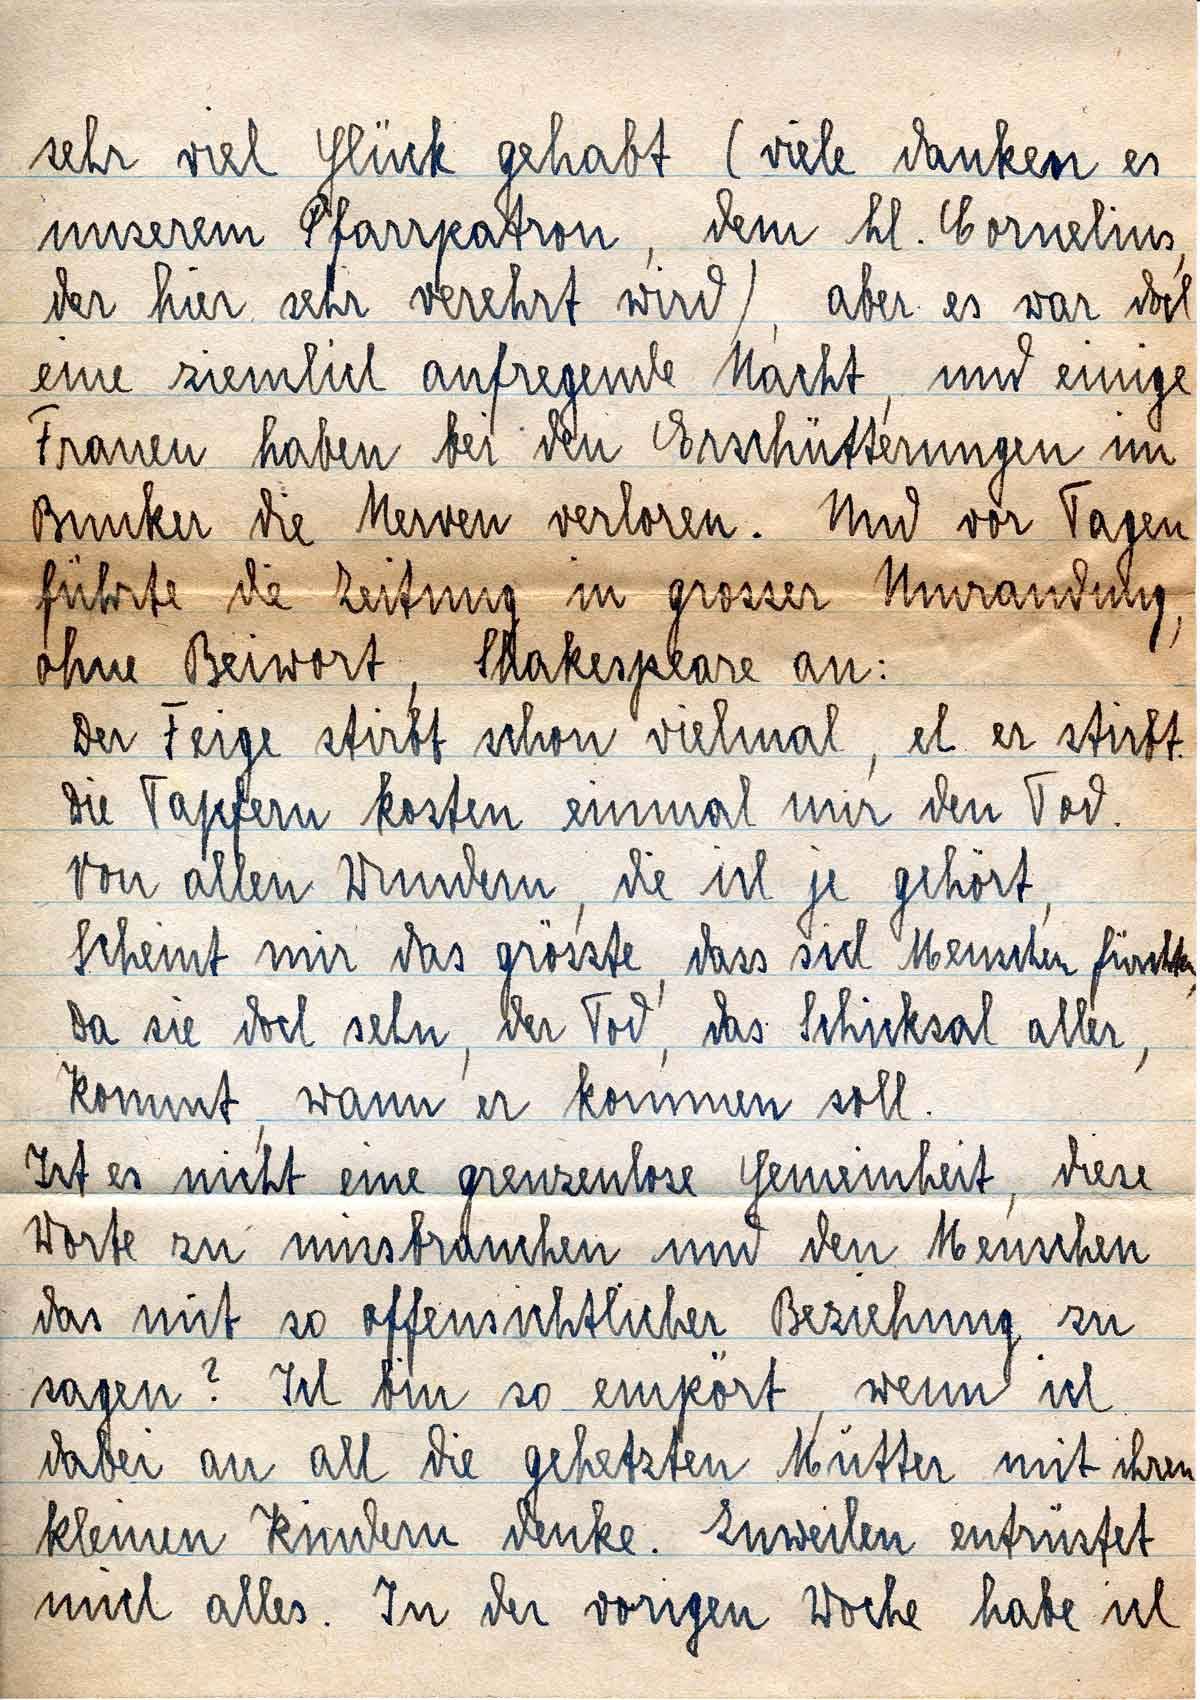 sehr viel Glück gehabt (viele danken es
unserem Pfarrpatron, dem hl. Cornelius,
der hier sehr verehrt wird), aber es war doch
eine ziemlich aufregende Nacht, und einige
Frauen haben bei den Erschütterungen im
Bunker die Nerven verloren. Und vor Tagen
führte die Zeitung in grosser Umrandung,
ohne Beiwort, Shakespeare an:
Der Feige stirbt schon vielmal, eh er stirbt.
Die Tapfern kosten einmal nur den Tod.
Von allen Wundern, die ich je gehört,
Scheint mir das grösste, dass sich Menschen fürchten,
Da sie doch sehn, der Tod, das Schicksal aller,
Kommt, wann er kommen soll.
Ist es nicht eine grenzenlose Gemeinheit, diese
Worte zu missbrauchen und den Menschen
das mit so offensichtlicher Beziehung zu
sagen? Ich bin so empört, wenn ich
dabei an all die gehetzten Mütter mit ihren
kleinen Kindern denke. Zuweilen entrüstet
mich alles. In der vorigen Woche habe ich